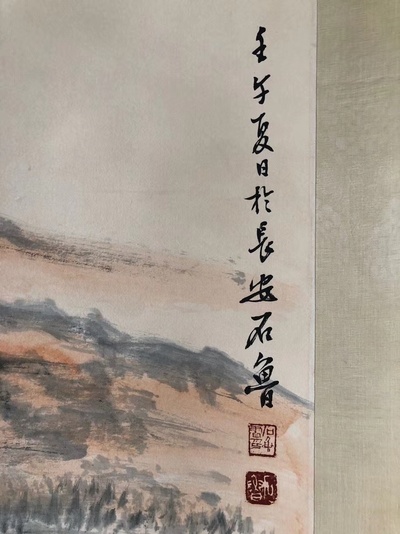 壬午夏日於長安石魯